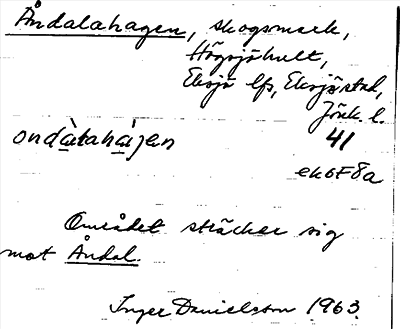 Åndalahagen, skogsmark,
Högsjöhult,
Eksjö lfs, Eksjö stad,
Jönk. l.
ond̀alahágen 41
ekoF8a
Området sträcker sig
mot Åndal.
Inger Danielsson 1963.